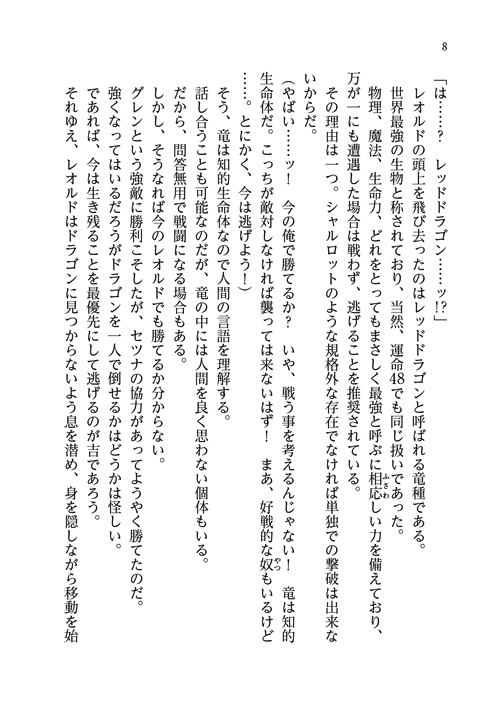 8
「は……？　レッドドラゴン……ッ!?」
　レオルドの頭上を飛び去ったのはレッドドラゴンと呼ばれる竜種である。
　世界最強の生物と称されており、当然、運命48でも同じ扱いであった。
　物理、魔法、生命力、どれをとってもまさしく最強と呼ぶに相応しい力を備えており、
万が一にも遭遇した場合は戦わず、逃げることを推奨されている。
　その理由は一つ。シャルロットのような規格外な存在でなければ単独での撃破は出来な
いからだ。
（やばい……ッ！　今の俺で勝てるか？　いや、戦う事を考えるんじゃない！　竜は知的
生命体だ。こっちが敵対しなければ襲っては来ないはず！　まあ、好戦的な奴もいるけど
……。とにかく、今は逃げよう！）
　そう、竜は知的生命体なので人間の言語を理解する。
　話し合うことも可能なのだが、竜の中には人間を良く思わない個体もいる。
　だから、問答無用で戦闘になる場合もある。
　しかし、そうなれば今のレオルドでも勝てるか分からない。
　グレンという強敵に勝利こそしたが、セツナの協力があってようやく勝てたのだ。
　強くなってはいるだろうがドラゴンを一人で倒せるかはどうかは怪しい。
　であれば、今は生き残ることを最優先にして逃げるのが吉であろう。
　それゆえ、レオルドはドラゴンに見つからないよう息を潜め、身を隠しながら移動を始